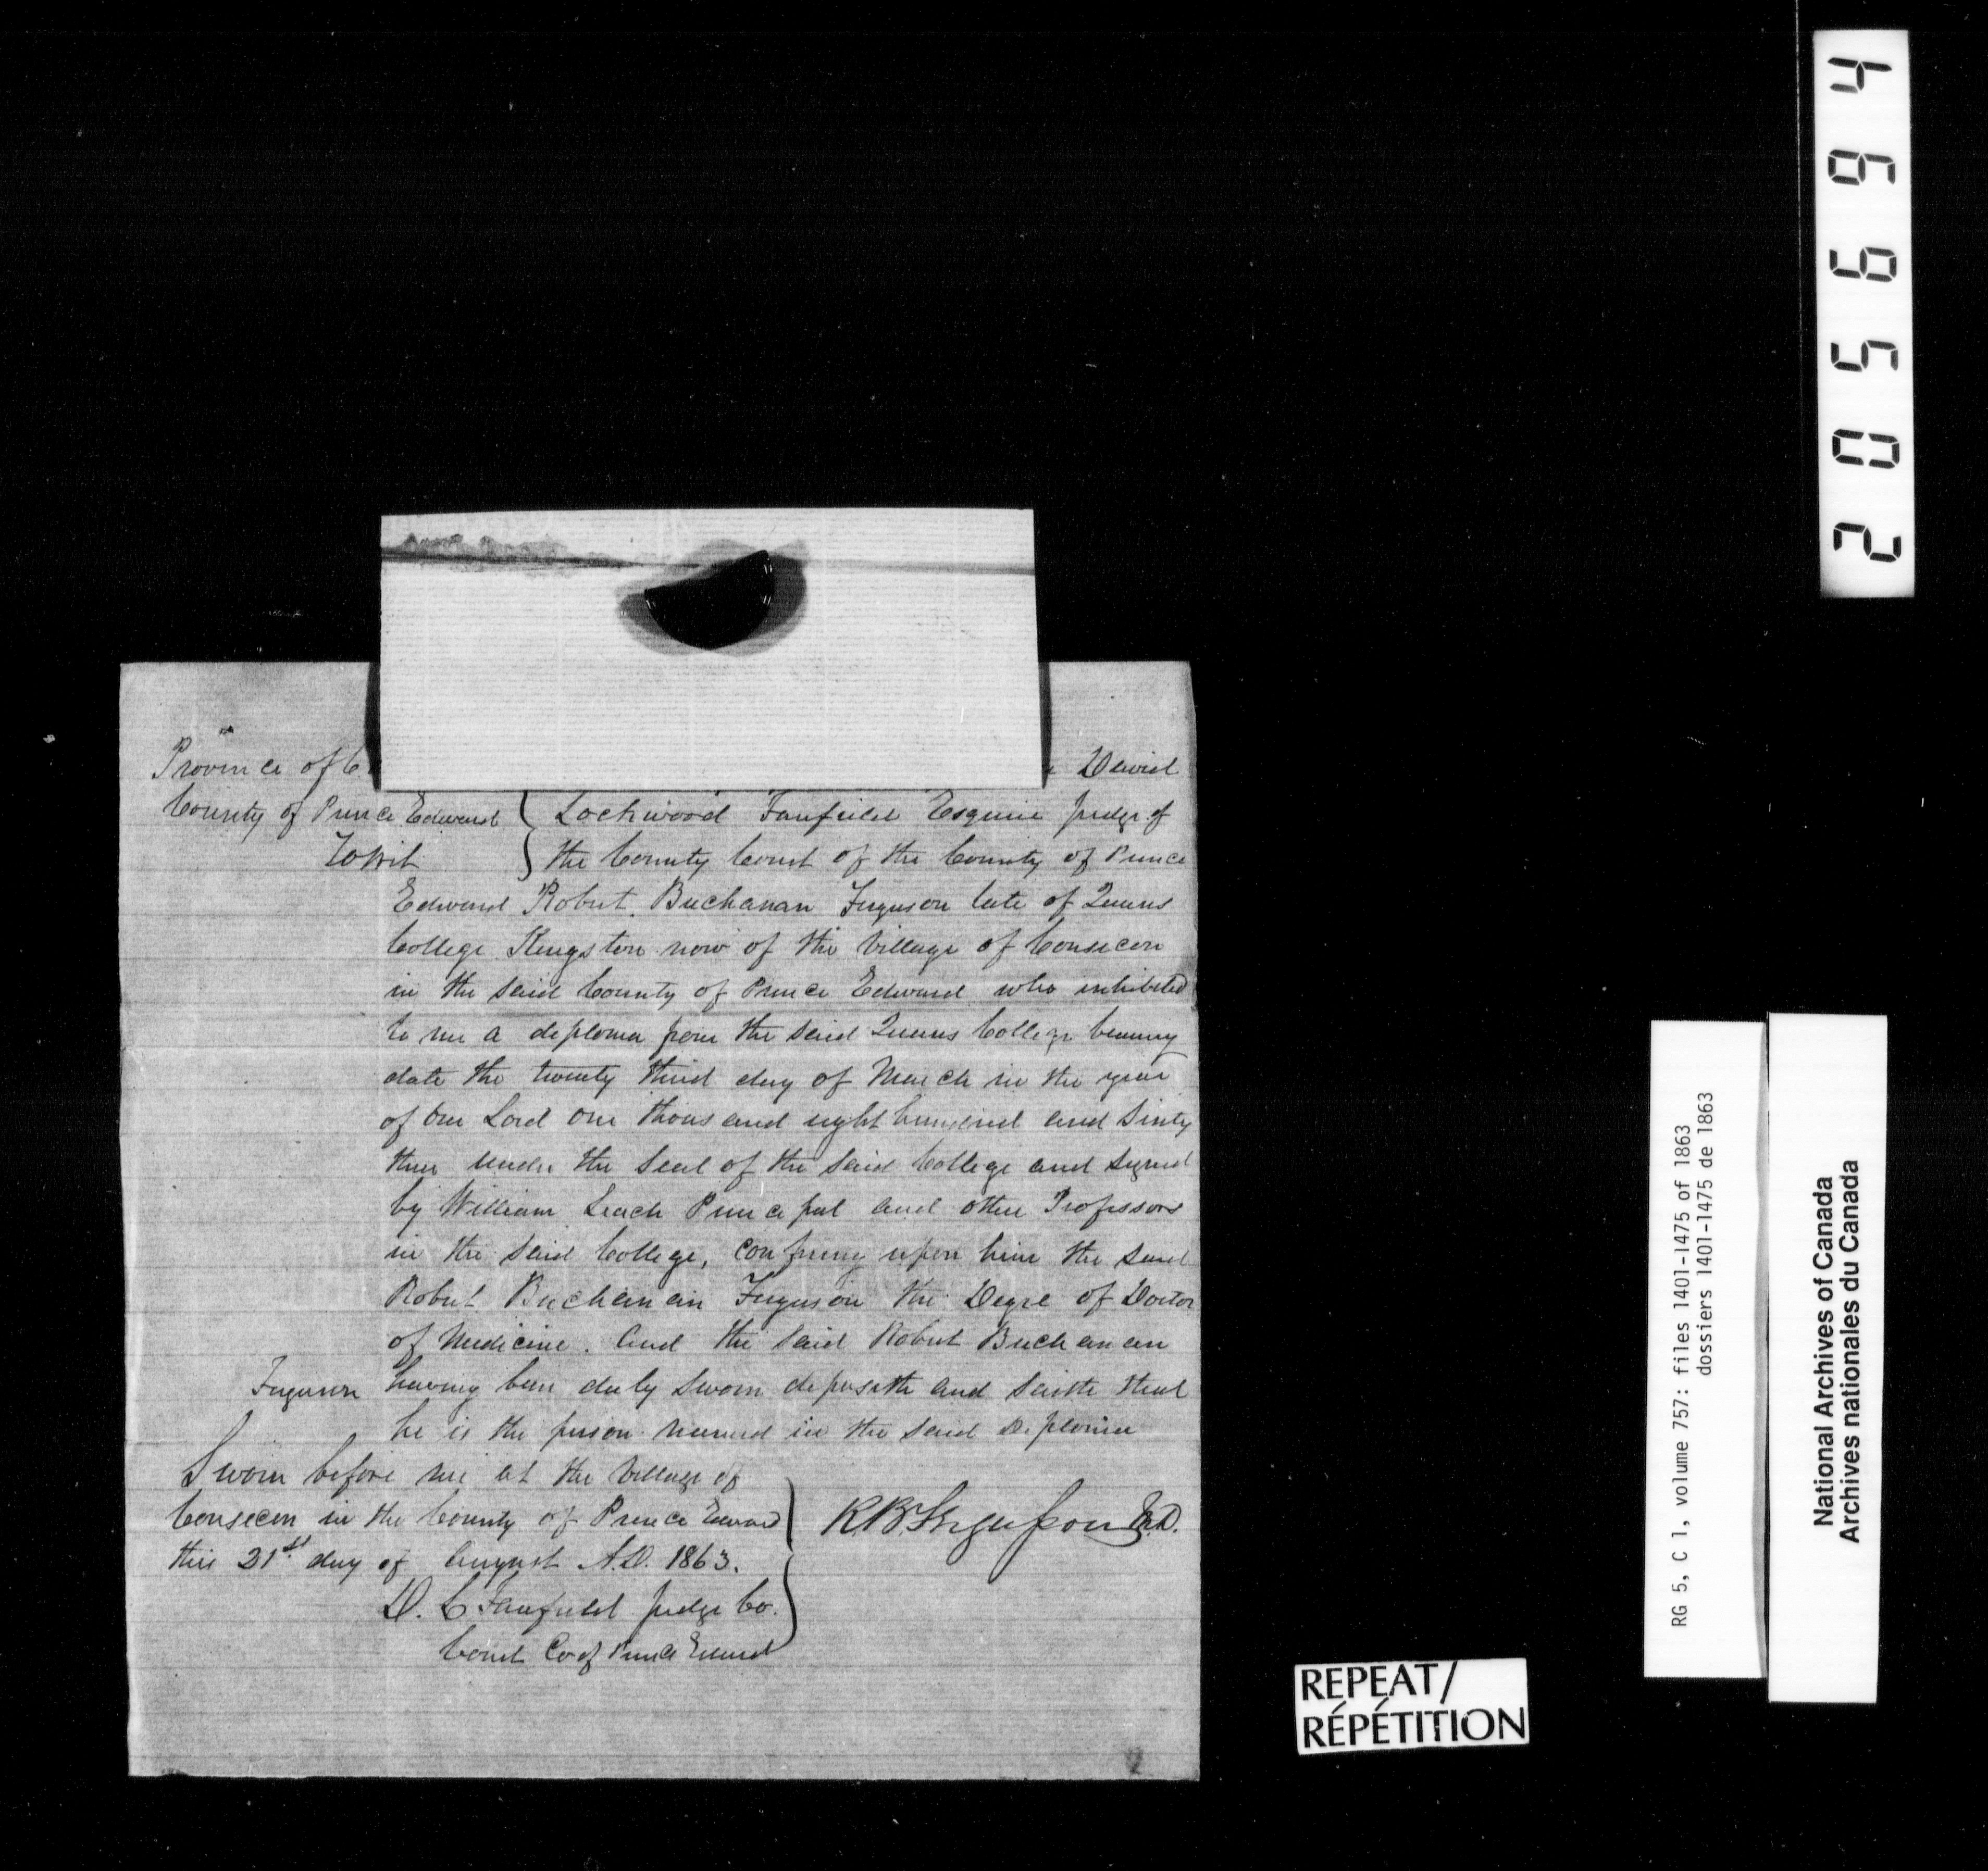 Province of C
David
County of Prince Edward
Lockwood Fairfield Esquire Judge of
To Wit
the County Court of the County of Prince
Edward Robert Buchanan Ferguson late of Queens
College Kingston now of the Village of Consecon
in the said County of Prince Edward who exhibited
to me a diploma from the said Queens College bearing
date the twenty third day of March in the year
of our Lord one thousand eight hundred and sixty
three under the Seal of the said College and signed
by William Leach Principal and other Professors
in the said College, conferring upon him the said
Robert Buchanan Ferguson the Degree of Doctor
of Medicine. And the said Robert Buchanan
Ferguson having been duly sworn deposeth and saith that
he is the person named in the said Diploma
Sworn before me at the Village of
Consecon in the County of Prince Edward
this 21st day of August A.D. 1863.
R B Ferguson M.D.
D. L Fairfield Judge Co.
Court Co of Prince Edward
205694
RG 5, C 1, volume 757: files 1401-1475 of 1863
dossiers 1401-1475 de 1863
National Archives of Canada
Archives nationales du Canada
REPEAT/
RÉPÉTITION